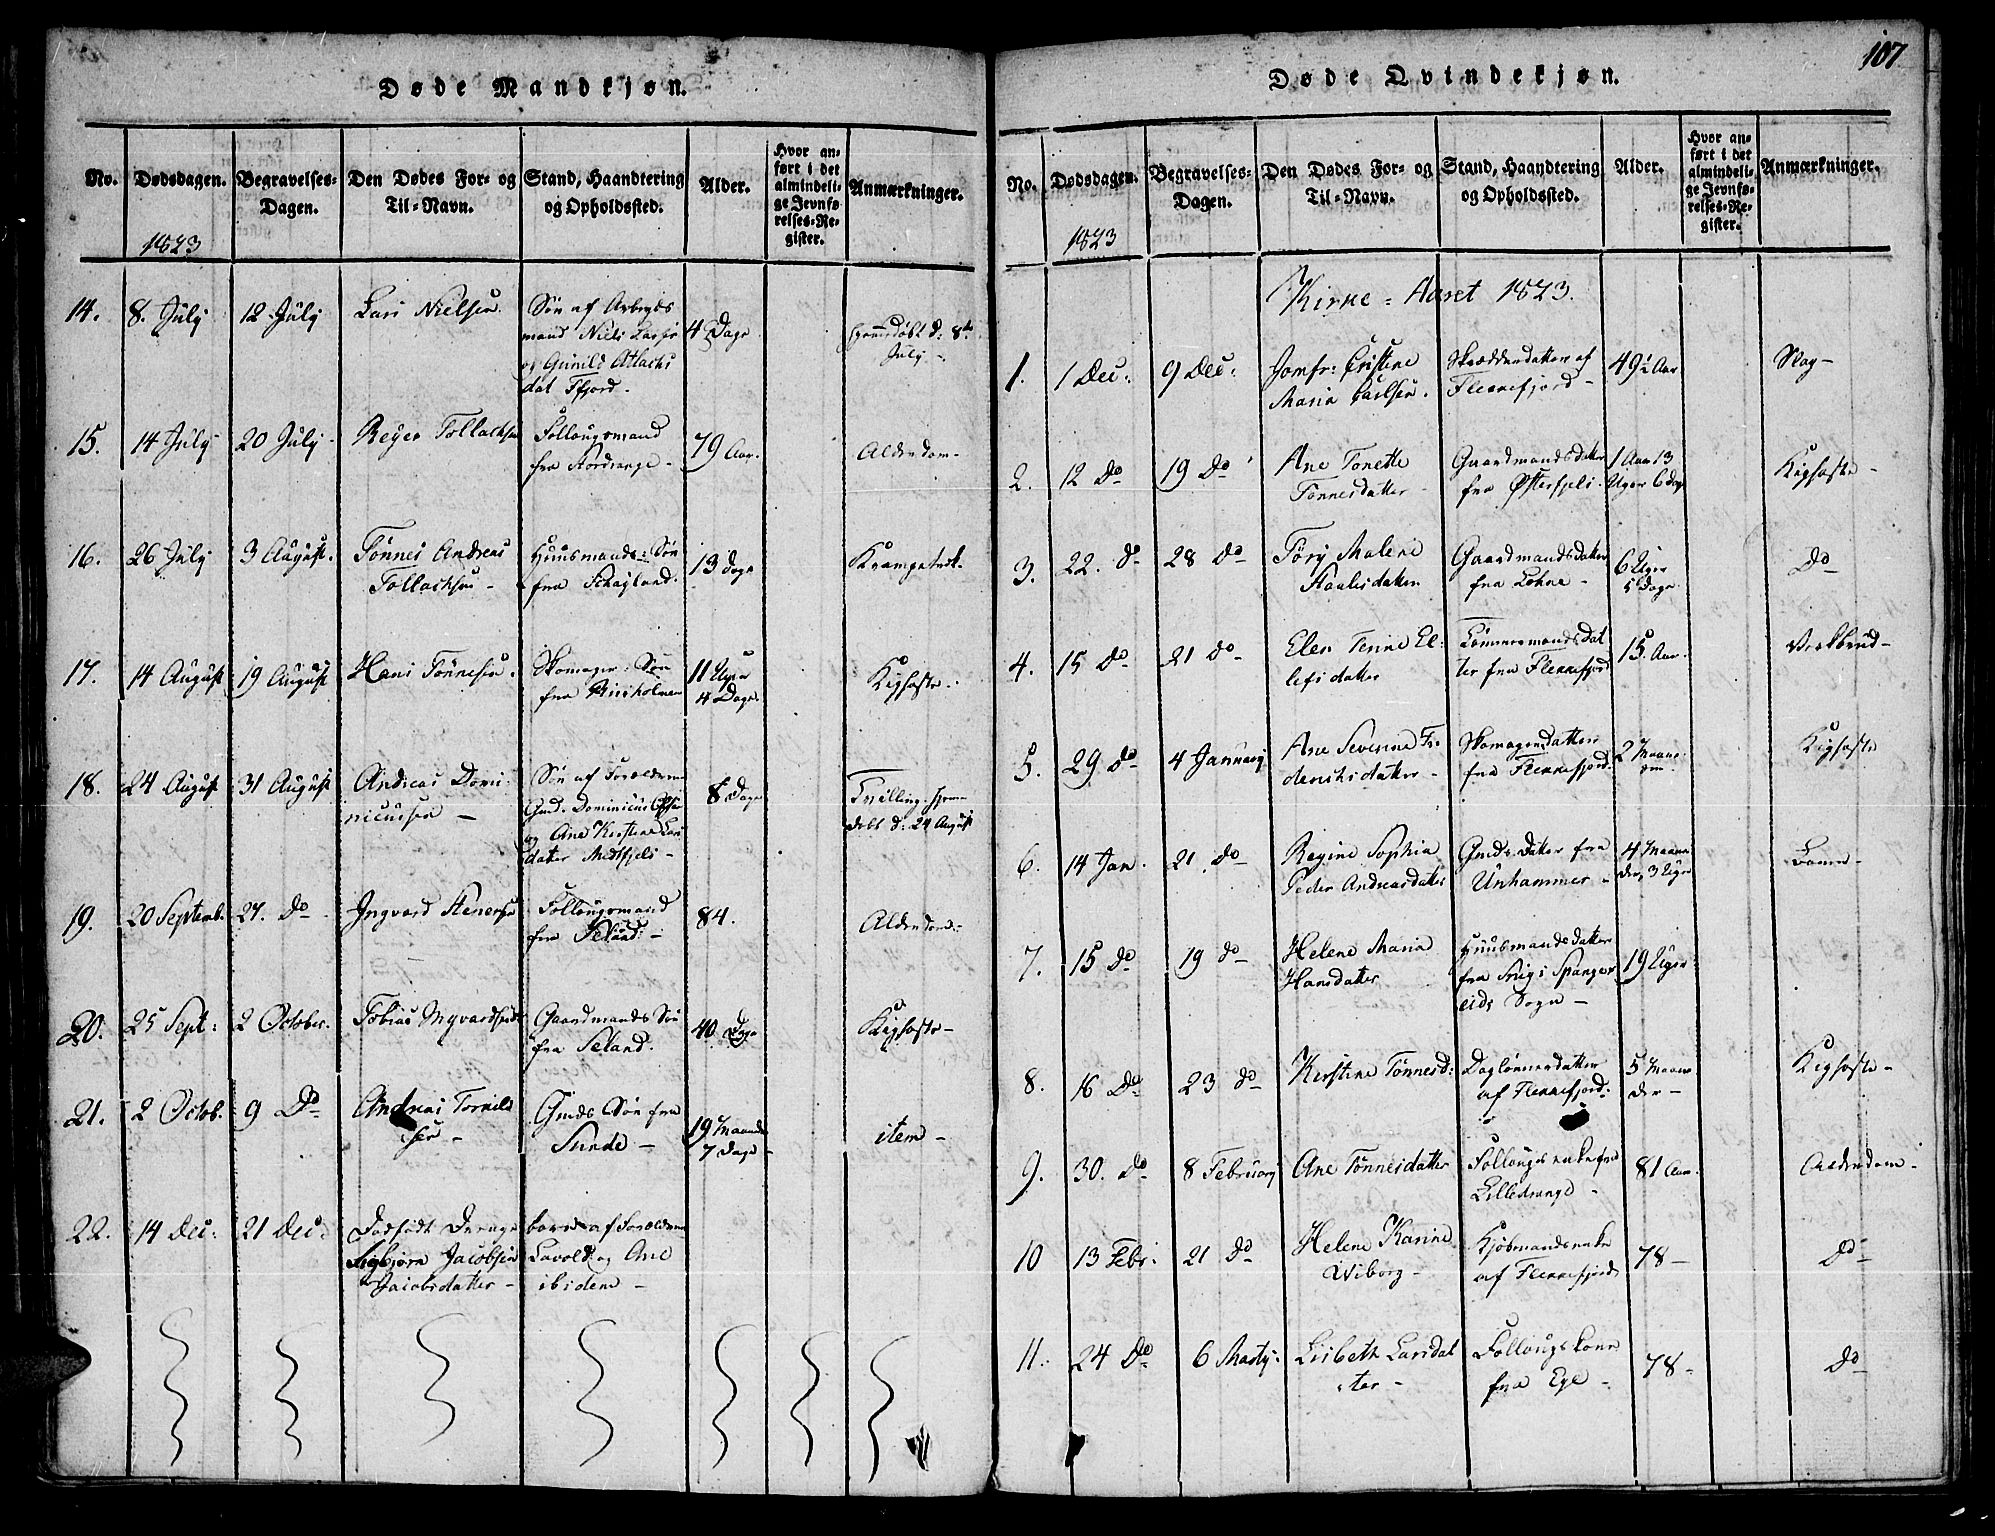 107
Døde Mandkjøn.
No.
Dødsdagen.
1823
Begravelses-
Dagen.
Den Dødes For- og
Til-Navn.
Stand, Haandtering
og Opholdssted.
Alder.
Hvor an-
ført i det
almindeli-
ge Jevnfø-
relses-Re-
gister.
Anmærkninger.
14.
8. July
12 July
Lars Nielsen
Søn af Arbeyds
mand Niels Larsen
og Gunild Atlachs
dat Ffjord.
4 Dage
hjemmedøbt d: 8de
July -
15.
14 July
20 July
Reyer Tollachsen
Follougsmand
fra Nordrange -
79 Aar.
Alderdom -
16.
26 July
3 August.
Tønnes Andreas
Tollachsen -
Huusmands-Søn
fra Schagland.
13 dage
Krampetræk.
17.
14 August
19 August
Hans Tønnesen.
Skomager-Søn
fra Birkholmen
11 Uger
4 Dage.
Kighoste.
18.
24 August
31 August
Andreas Domi-
nicussen -
Søn af Forældrene
Gmd. Dominicus
og Ane Kirstine Lars
dater Medfjeli -
8 Dage
Tvilling hjemme
døbt d: 24 August
19.
20 Septemb.
27. Do
Ingvard Stenersen
Follougsmand
fra Seland: -
84.
Alderdom: -
20.
25 Sept:
2 October.
Tobias Ingvardsen
Gaardmands Søn
fra Seland.
40. Dage
Kighoste -
21.
2 Octob.
9 Do
Andreas Torkild
sen -
Gmds Søn fra
Sunde -
19 Maander
7 Dage -
item -
22.
14 Dec:
21 Dec:
Dødfødt Drenge
barn af Forældrene
Sigbjørn Jacobsen
Lavold og Ane
Jacobsdatter -
ibidem -
Døde Qvindekjøn.
No.
Dødsdagen.
1823
Begravelses-
Dagen.
Den Dødes For- og
Til-Navn.
Stand, Haandtering
og Opholdssted.
Alder.
Hvor an-
ført i det
almindeli-
ge Jevnfø-
relses-Re-
gister.
Anmærkninger.
Kirke-Aaret 1823.
1.
1 Dec:
9 Dec:
Jomfr: Cristine
Maria Carlsen.
Skrædderdatter af
Flekkefjord -
49½ Aar
Slag -
2.
12 Do
19 Do
Ane Tonette
Tønnesdatter -
Gaardmandsdatter
fra Østerfjeli.
1 Aar 13
Uger 6 dage
Kighoste -
3.
22. Do
28 Do
Tørj Malene
Staalesdatter
Gaardmandsdatter
fra Lohne -
6 Uger
5 Dage
Do
4.
15 Do
21 Do
Elen Tenne El-
lefsdatter
Tømmermandsdat
ter fra Flekkefjord
15. Aar.
5.
29 Do
4 January
Ane Severine Fri-
derichsdatter -
Skomagerdatter
fra Flekkefjord.
2 Maane-
Kighoste
6.
14 Jan.
21. Do
Regine Sophia
Peder Andreasdatter
Gmds Datter fra
Unhammer -
4 Maane
der, 3 Uger
7.
15 Do
19 do
Helene Maria
Hansdatter
Huusmandsdatter
fra Snig i Spanger
eids Sogn -
19 Uger
8.
16 Do
23 Do
Kirstine Tønnesd:
Daglønnerdatter
af Flekkefjord:
5 Maane
der -
Kighoste -
9.
30. Do
8 February
Ane Tønnesdatter
Follougs enke fra
Lilledrange -
81 Aar.
Alderdom -
10
13 Febr.
21 Do
Helene Karine
Wiborg -
Kjøbmandsenke
af Flekkefjord
78 -
Do
11.
24 Do
6 Marty:
Lisbeth Larsdat
ter -
Follougskone
fra Ege -
78 -
Do